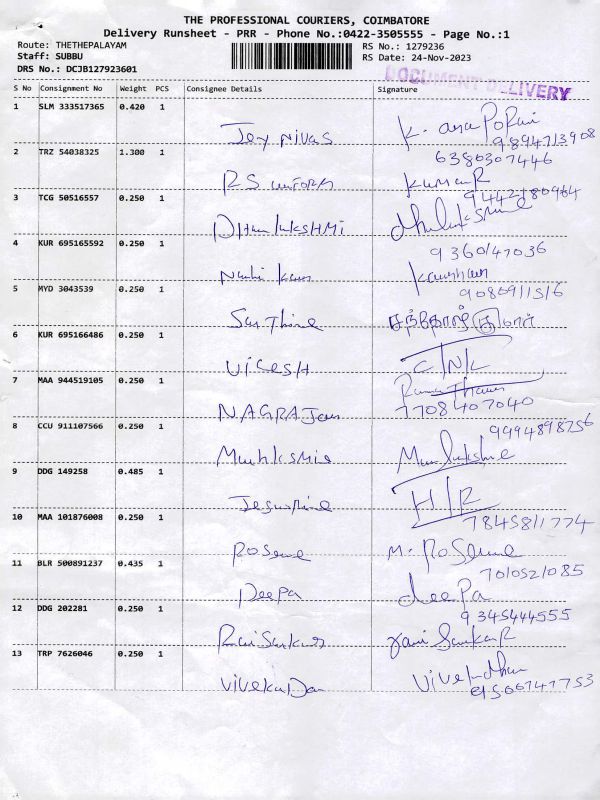 THE PROFESSIONAL COURIERS, COIMBATORE
Delivery Runsheet - PRR - Phone No.:0422-3505555 - Page No.:1
Route: THETHEPALAYAM
RS No.: 1279236
Staff: SUBBU
RS Date: 24-Nov-2023
DRS No.: DCJB127923601
DOCUMENT DELIVERY
S No Consignment No Weight PCS Consignee Details Signature
1 SLM 333517365 0.420 1
Joy nivas
9894713908
2 TRZ 54038325 1.300 1
6380307446
RS uniform KumaR
3 TCG 50516557 0.250 1
9442180964
DhanlakshMi
4 KUR 695165592 0.250 1
9360147036
5 MYD 3043539 0.250 1
9080911516
6 KUR 695166486 0.250 1
VigesH C/N/L
7 MAA 944519105 0.250 1
NAGRAJan 7708407040
8 CCU 911107566 0.250 1
9994898756
9 DDG 149258 0.485 1
H/R
10 MAA 101876008 0.250 1
7845811774
11 BLR 500891237 0.435 1
7010521085
Deepa deePa
12 DDG 202281 0.250 1
9345444555
RaviSankar ravi SankaR
13 TRP 7626046 0.250 1